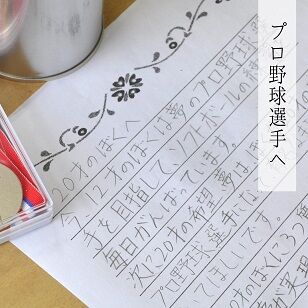 プロ野球選手へ
20才のぼくへ
今、12才のぼくは夢のプロ野球選
手を目指してソフトボールの練
毎日がんばってます。
次に20才の希望、夢は
プロ野球選手にな
てほしいです。
才のぼくに32